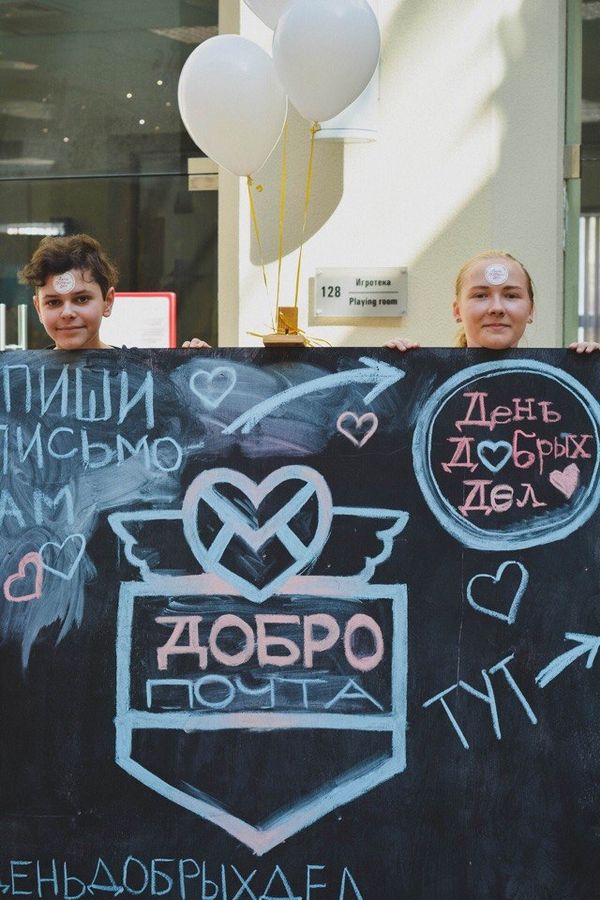 128
Игротека
Playing room
ПИШИ
ПИСЬМО-
АМ
День
Добрых
Дел
ДОБРО
ПОЧТА
ТУТ
ДЕНЬДОБРЫХДЕЛ